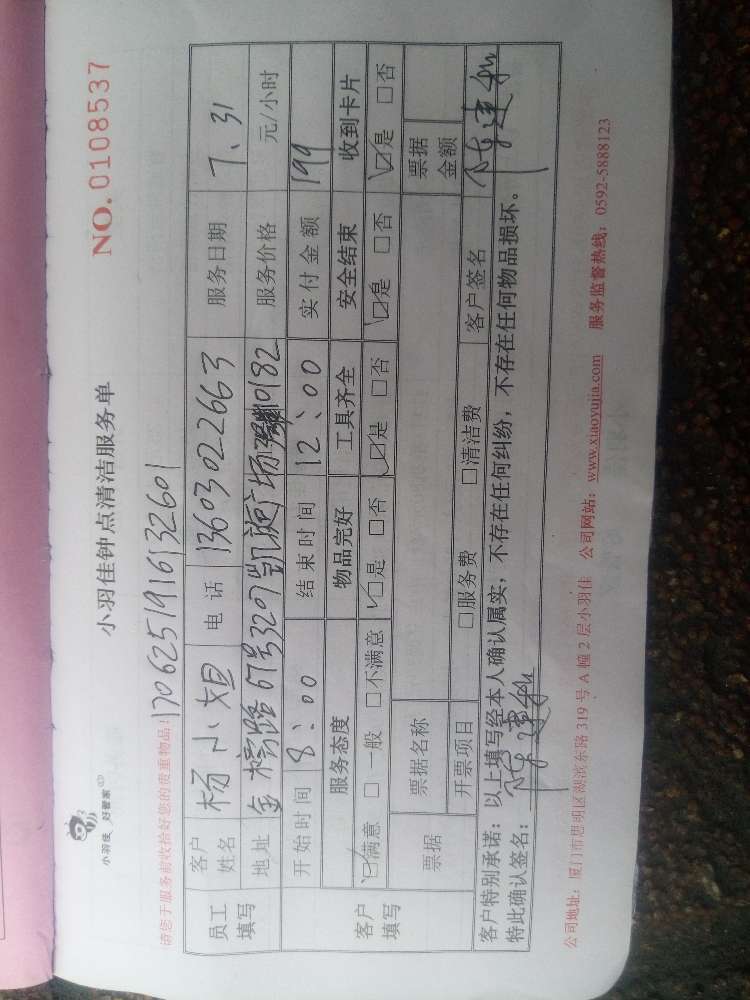 小羽佳 好管家
小羽佳钟点清洁服务单
NO. 0108537
请您于服务前收拾好您的贵重物品! 1706251916132601
员工填写 客户姓名 杨小姐 电话 13603022663 服务日期 7、31
地址 金榜路67号3207凯旋广场 10182 服务价格 元/小时
客户填写 开始时间 8:00 结束时间 12:00 实付金额 199
服务态度 物品完好 工具齐全 安全结束 收到卡片
☑满意 □一般 □不满意 ☑是 □否 ☑是 □否 ☑是 □否 ☑是 □否
票据 票据名称 票据金额
开票项目 □服务费 □清洁费 客户签名
客户特别承诺:以上填写经本人确认属实,不存在任何纠纷,不存在任何物品损坏。
特此确认签名:
公司地址:厦门市思明区湖滨东路 319 号 A 幢 2 层小羽佳 公司网站:www.xiaoyujia.com 服务监督热线:0592-5888123